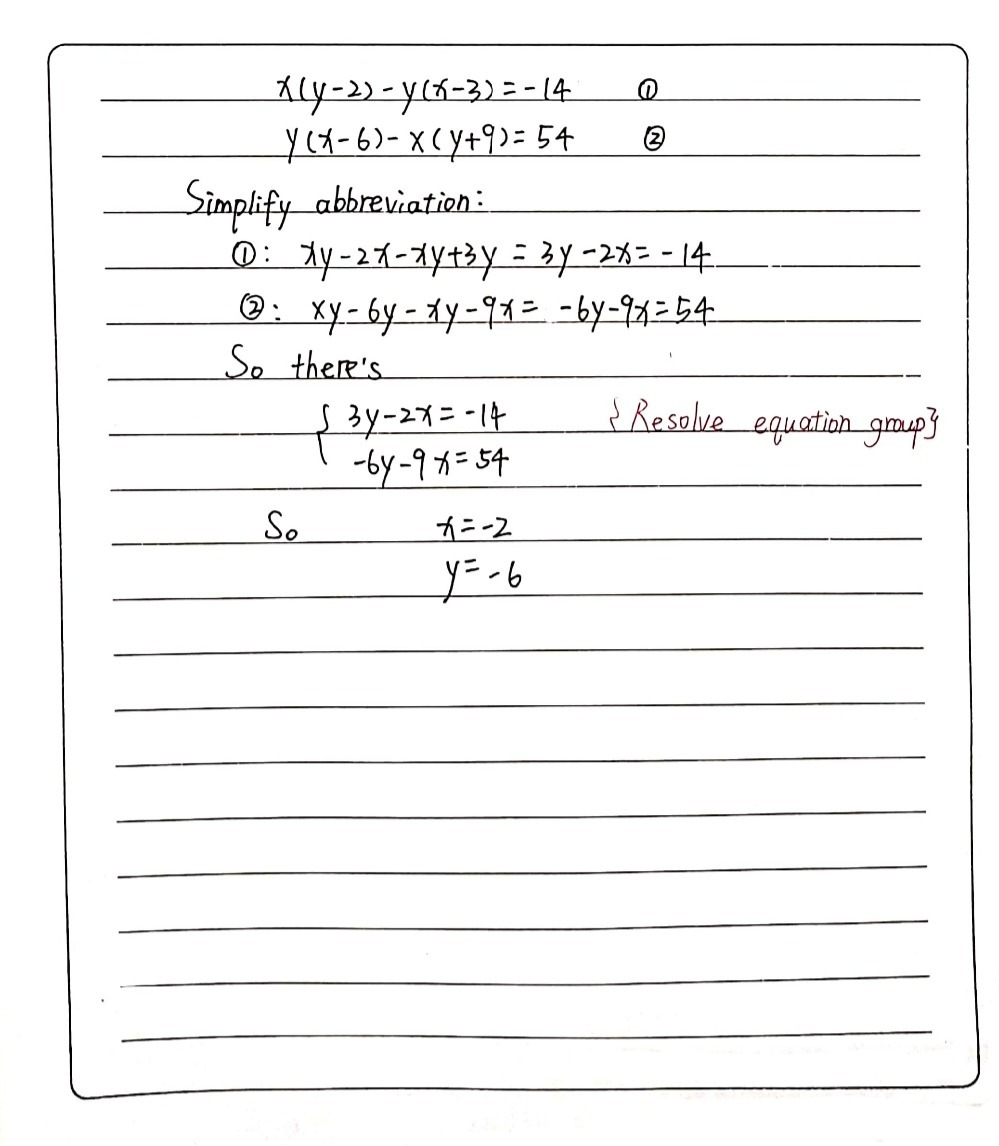 x(y-2)-y(x-3)=-14 ①
y(x-6)-x(y+9)=54 ②
Simplify abbreviation:
①: xy-2x-xy+3y=3y-2x=-14
②: xy-6y-xy-9x=-6y-9x=54
So there's
{ 3y-2x=-14 {Resolve equation group}
-6y-9x=54
So x=-2
y=-6